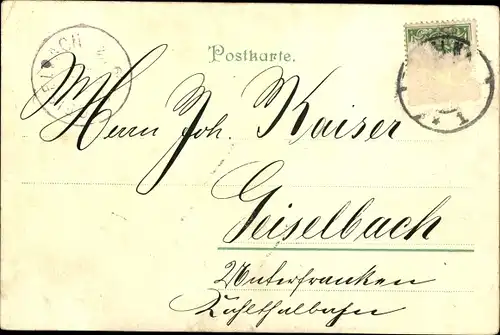 Postkarte.
Herrn Joh. Kaiser
Geiselbach
Unterfranken
Kahlthalbahn